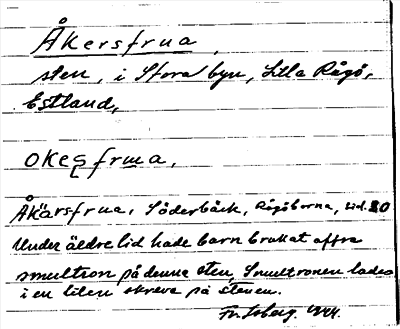 Åkersfrua,
sten, i Stora byn, Lilla Rågö,
Estland,
okesfrua,
Åkärsfrua, Söderbäck, Rågöborna, sid. 20
Under äldre tid hade barn brukat offra
smultron på denna sten. Smultronen lades
i en liten skreva på stenen.